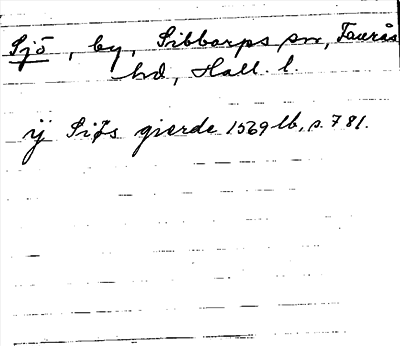 Sjö, by, Sibbarps sn, Faurås
hd, Hall. l.
ij Siøs gierde 1569 lb, s. 781.